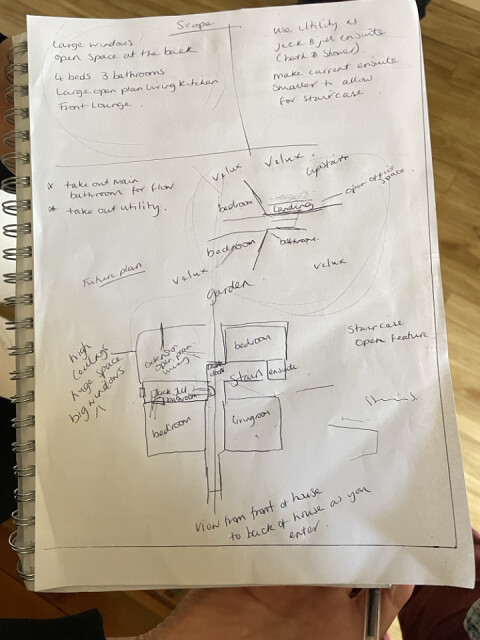 Scope
Large windows
open space at the back
4 beds 3 bathrooms
Large open plan living kitchen
Front Lounge.
use utility as
jack & jill ensuite
(bath & shower).
make current ensuite
smaller to allow
for staircase.
* take out main
bathroom for flow
* take out utility.
velux
velux.
upstairs
bedroom
Landing
open office
space
bedroom
bathroom.
velux
velux
Future plan
garden
high
ceilings
huge space
big windows
extension
open plan
living
bedroom
Stairs
ensuite
Jack Jill
bathroom
bedroom
livingroom
Staircase
Open Feature
view from front of house
to back of house as you
enter.